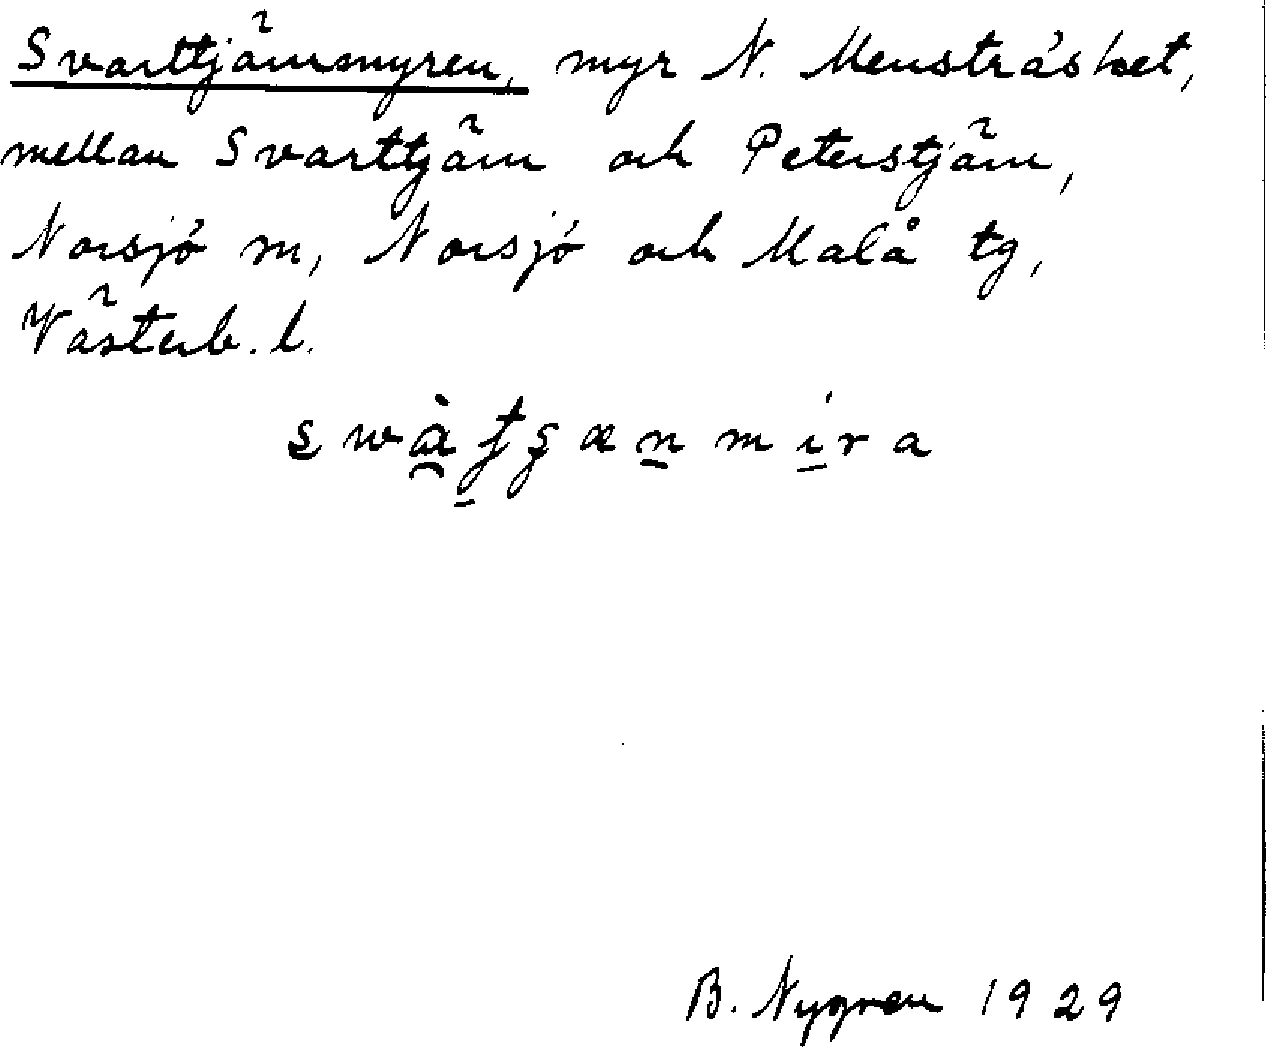 Svarttjärnmyren, myr N. Mensträsket,
mellan Svarttjärn och Peterstjärn,
Norsjö m, Norsjö och Malå tg,
Västerb. l.
B. Nygren 1929